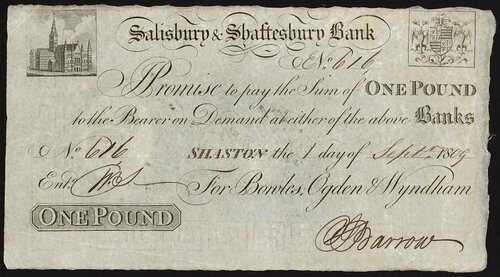 Salisbury & Shaftesbury Bank
No. 616
I Promise to pay the Sum of ONE POUND
to the Bearer on Demand at either of the above Banks
No. 616 SHASTON the 1 day of Septr. 1809
Entd. For Bowles, Ogden & Wyndham
ONE POUND
Barrow